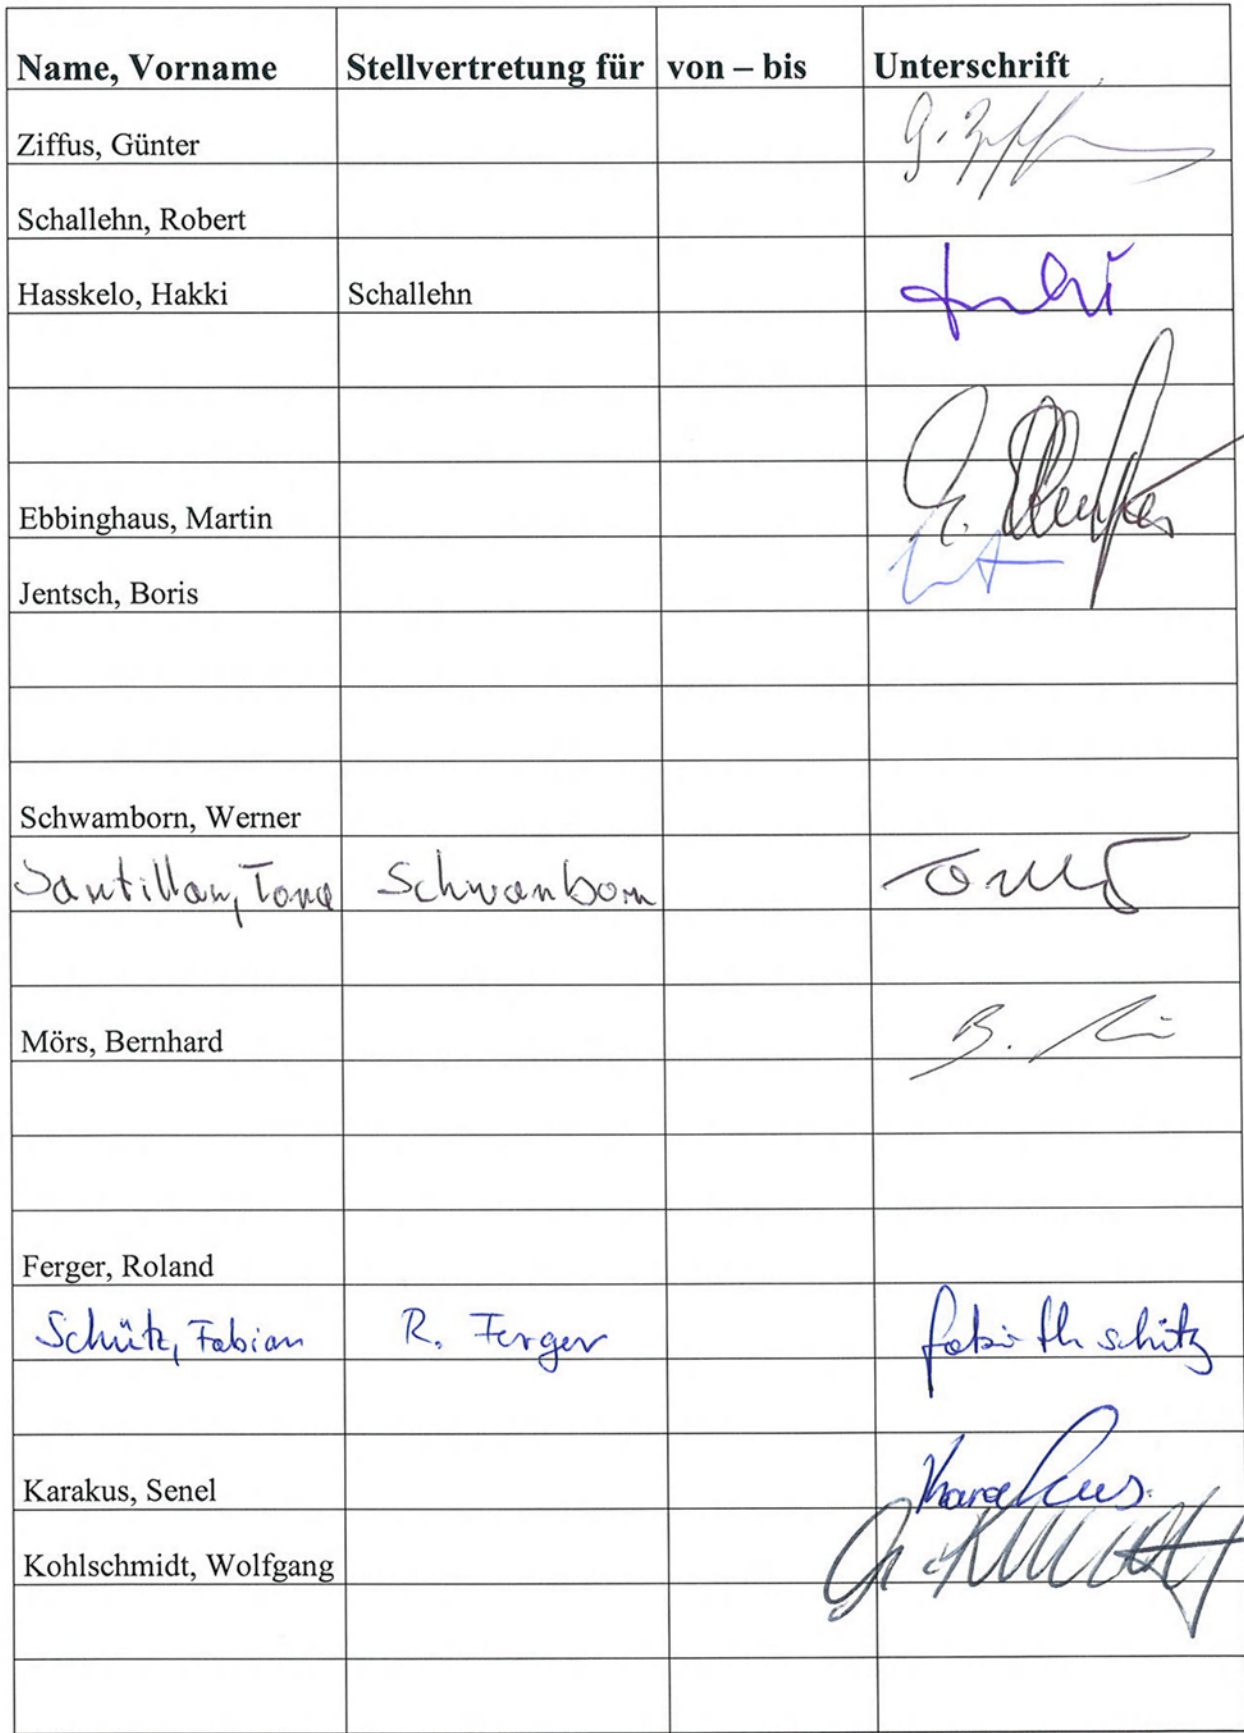 Name, Vorname Stellvertretung für von – bis Unterschrift
Ziffus, Günter
Schallehn, Robert
Hasskelo, Hakki Schallehn
Ebbinghaus, Martin
Jentsch, Boris
Schwamborn, Werner
Santillan, Tona Schwanborn
Mörs, Bernhard B.
Ferger, Roland
Schütz, Fabian R. Ferger Schütz
Karakus, Senel Karakus.
Kohlschmidt, Wolfgang